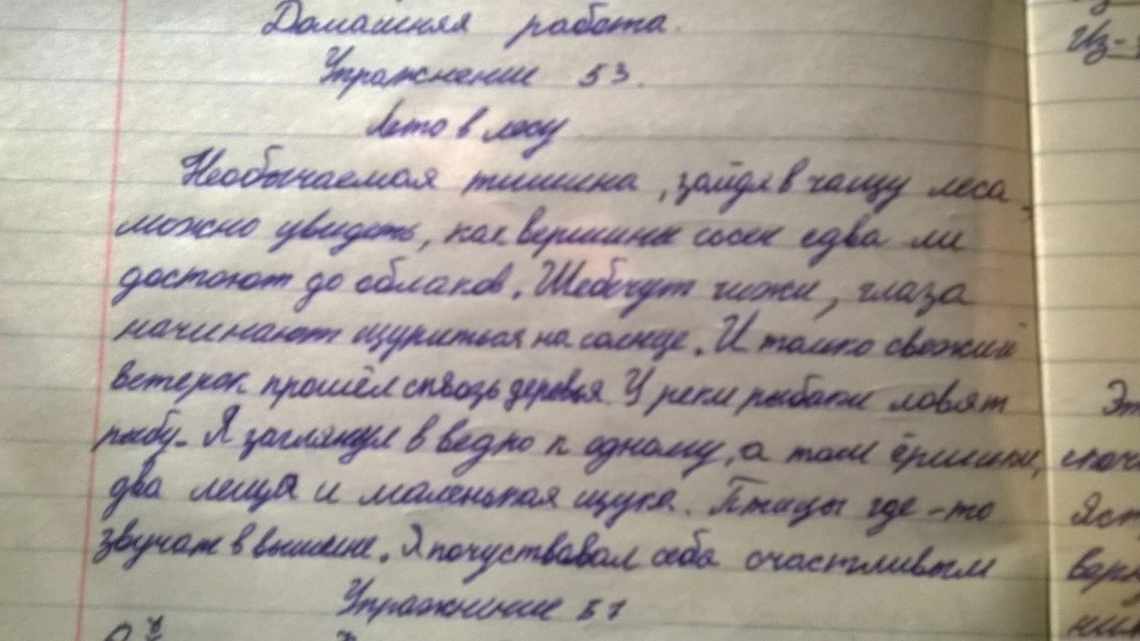 Домашняя работа.
Упражнение 53.
Лето в лесу
Необычаемая тишина, зайдя в чащу леса
можно увидеть, как вершины сосен едва ли
достают до облаков. Щебечут чижи, глаза
начинают щуриться на солнце. И только свежий
ветерок прошёл сквозь деревья. У реки рыбаки ловят
рыбу. Я заглянул в ведро к одному, а там ёршики,
два леща и маленькая щука. Птицы где-то
звучат в вышине. Я почуствовал себя счастливым
Упражнение
Из-
Эт